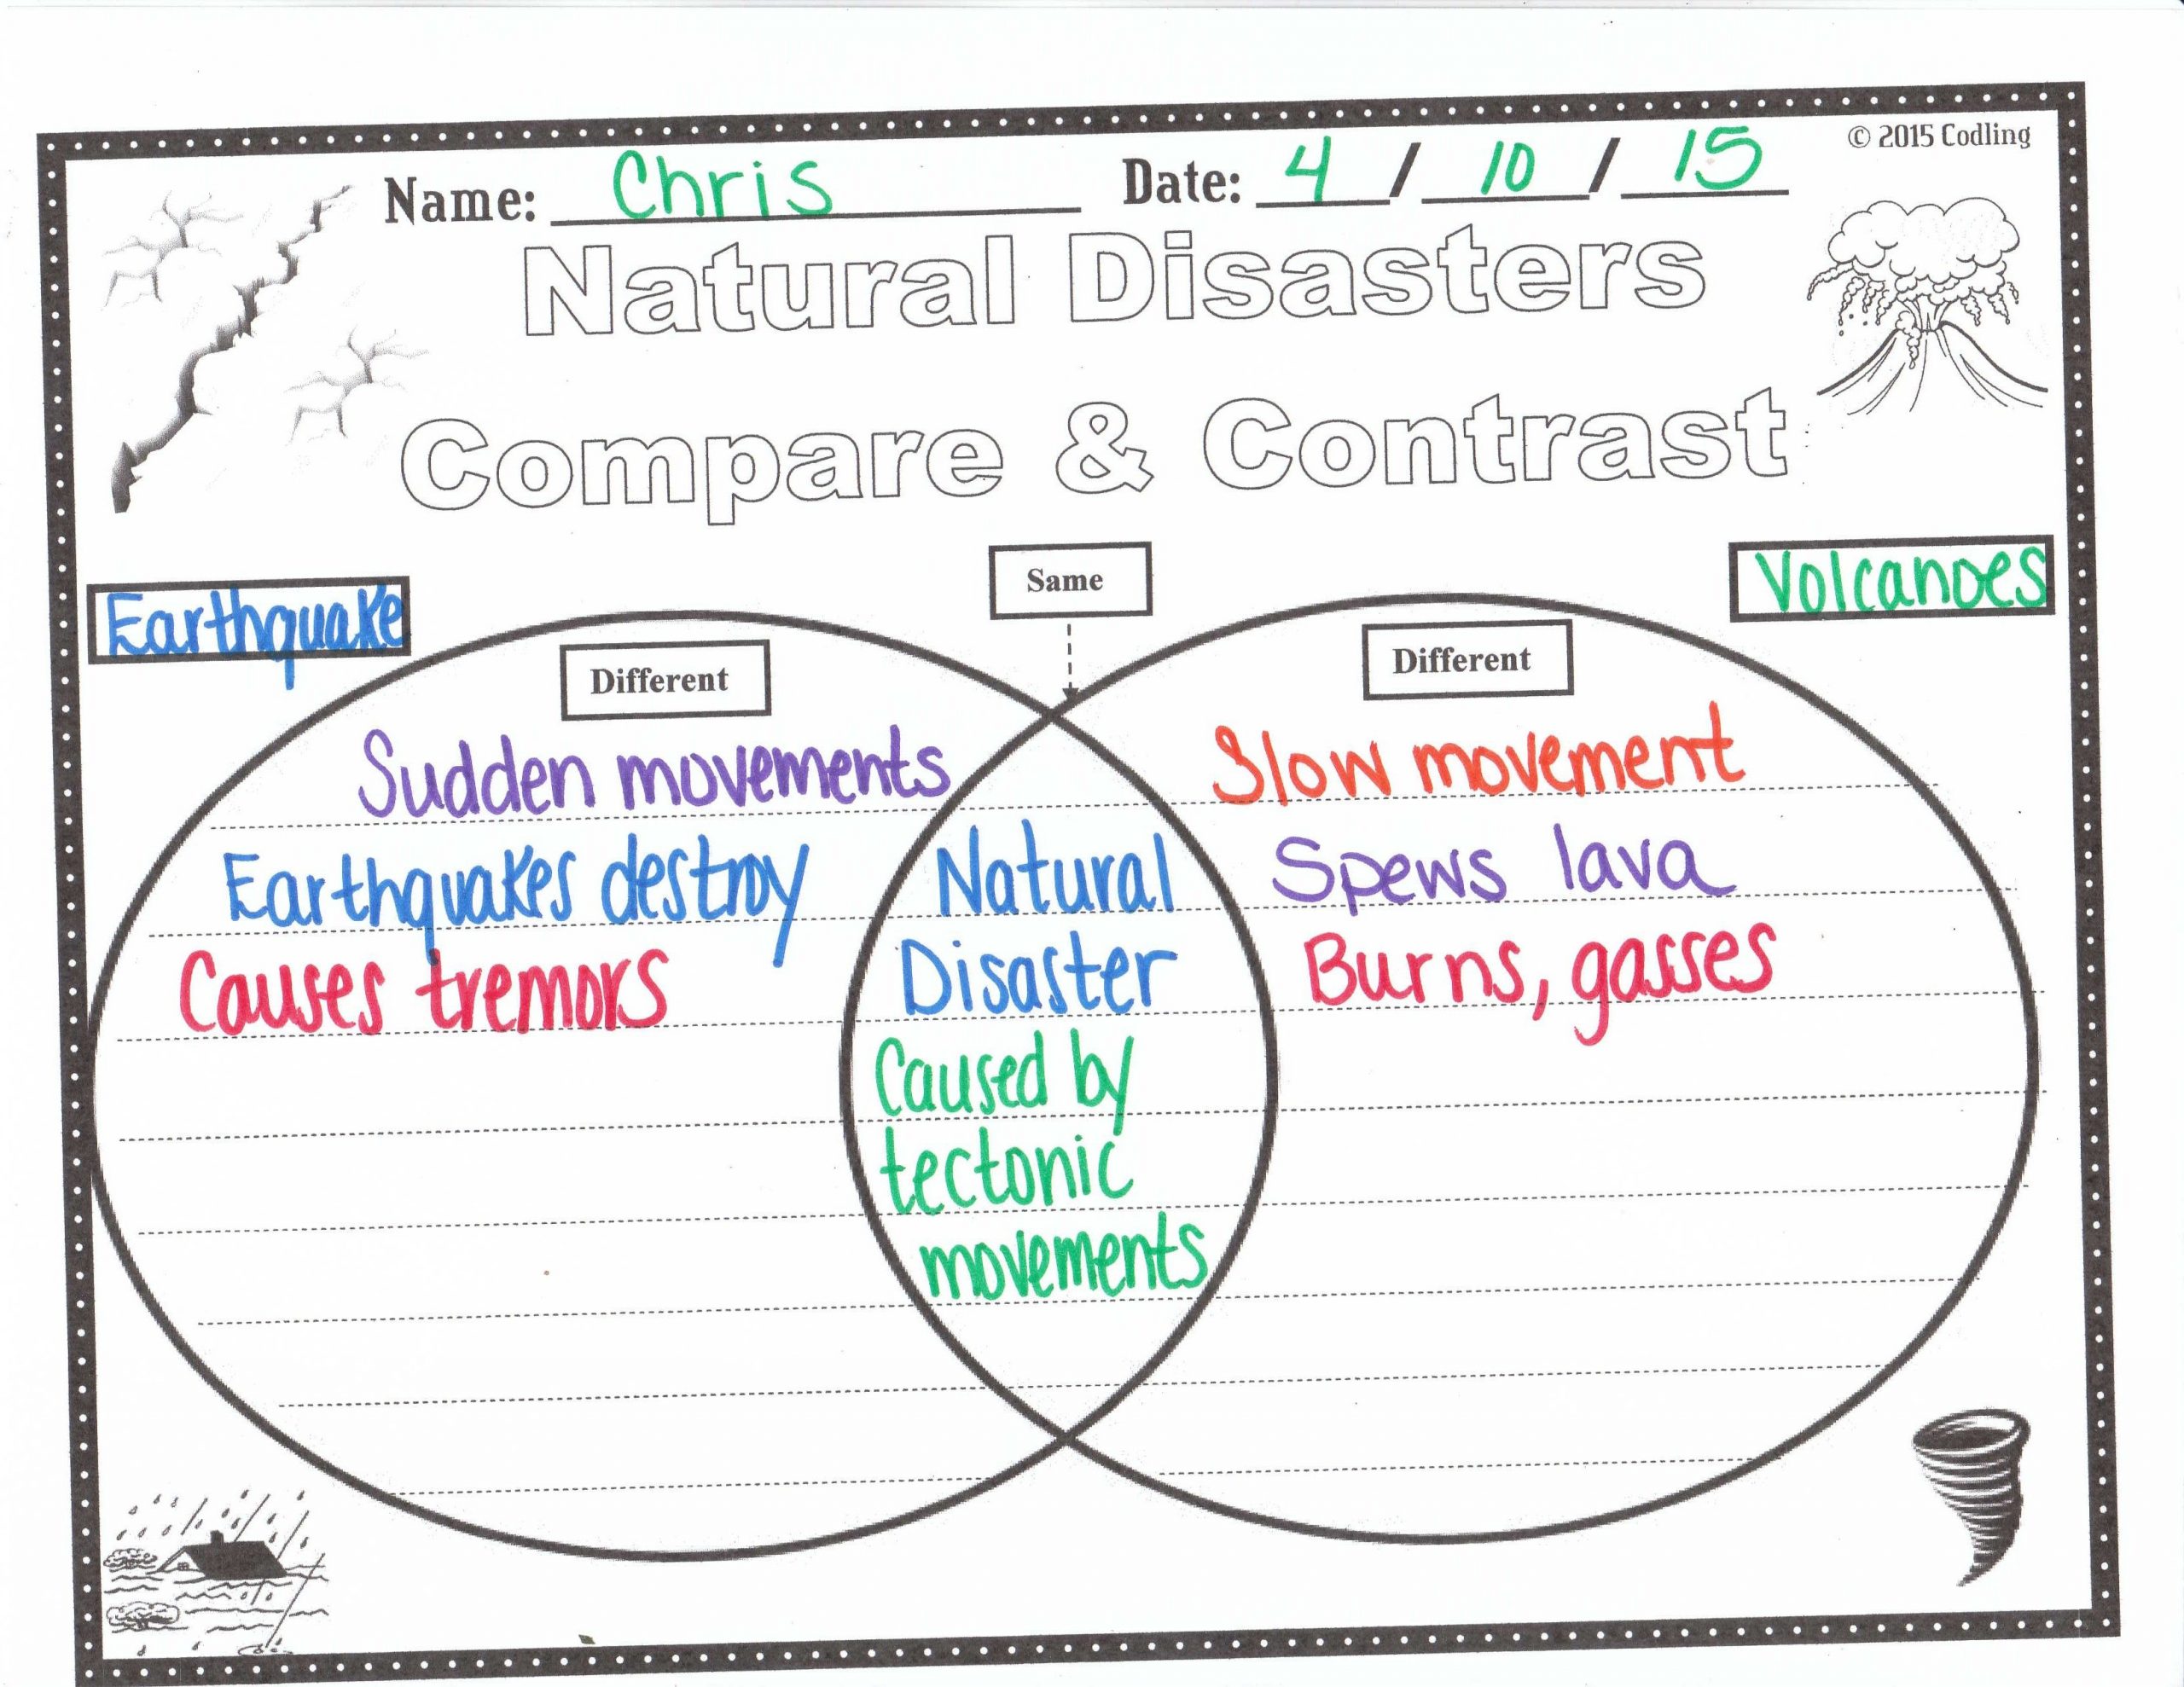 © 2015 Codling
Name: Chris Date: 4 / 10 / 15
Natural Disasters
Compare & Contrast
Same
Earthquake
Volcanoes
Different
Different
Sudden movements
Earthquakes destroy
Causes tremors
Natural
Disaster
Caused by
tectonic
movements
Slow movement
Spews lava
Burns, gasses